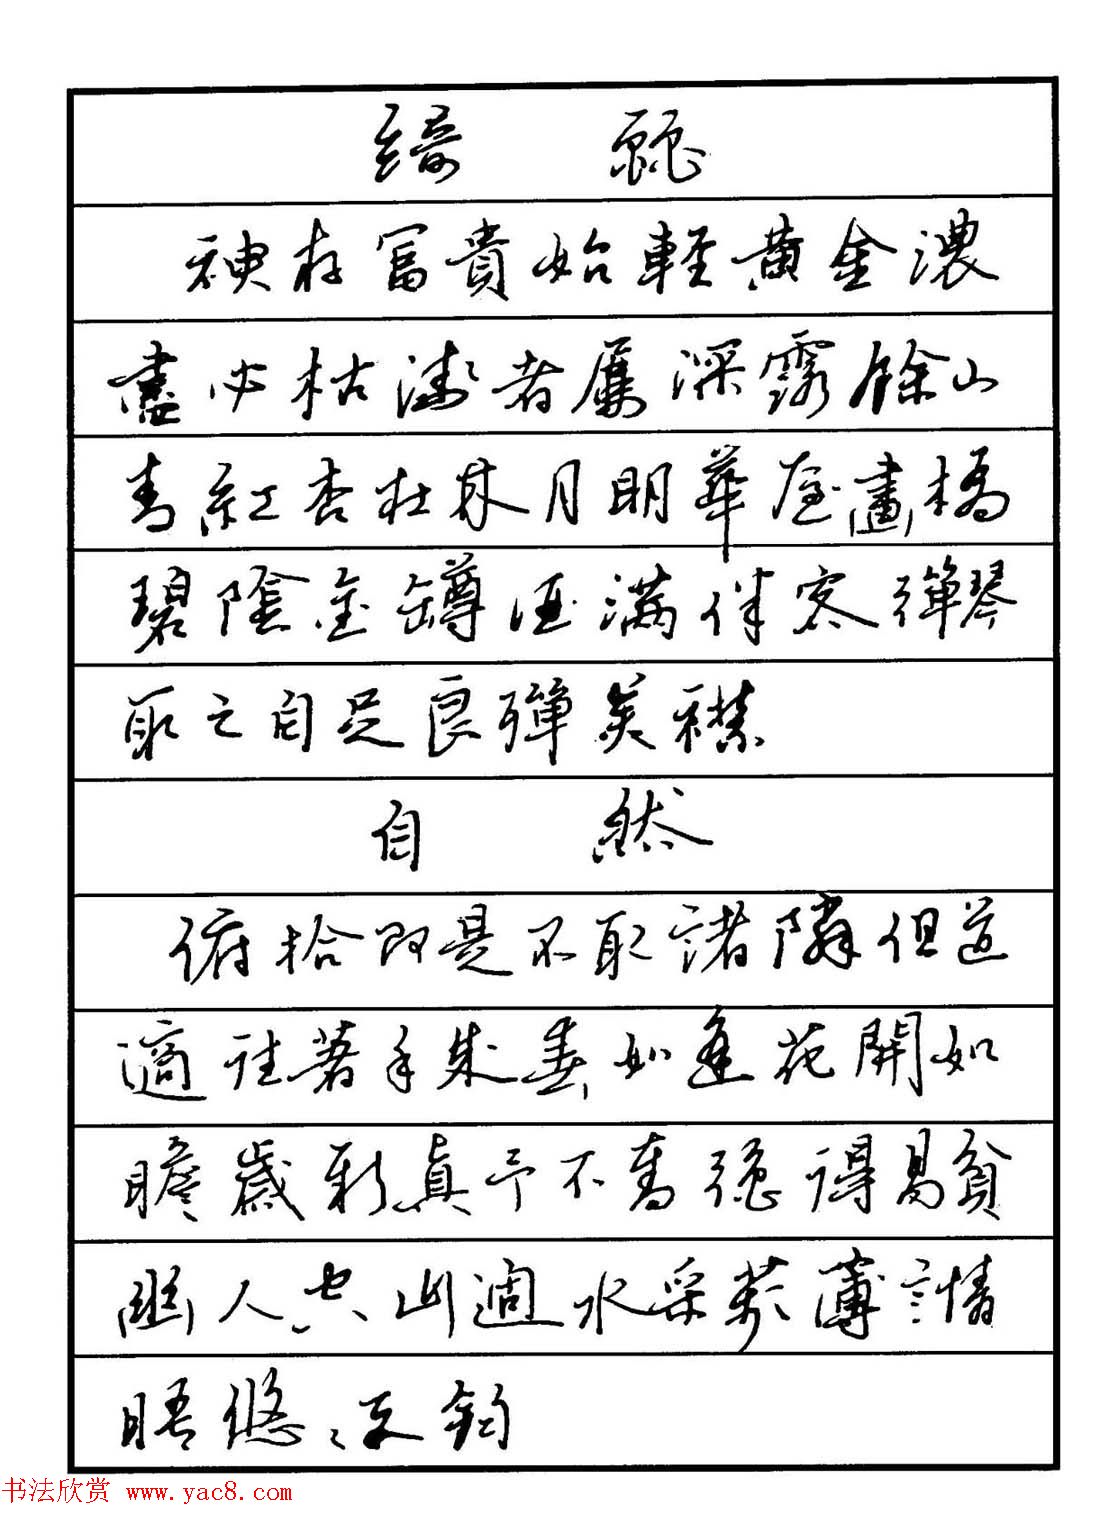 綺麗
神存富貴始輕黃金濃
盡必枯淺者屢深露餘山
青紅杏在林月明華屋畫橋
碧陰金罇酒滿伴客彈琴
取之自足良彈美襟
自然
俯拾即是不取諸隣但道
適往著手成春如逢花開如
瞻歲新真予不奪強得易貧
幽人空山過水采蘋薄言情
晤悠〻天鈞
书法欣赏 www.yac8.com